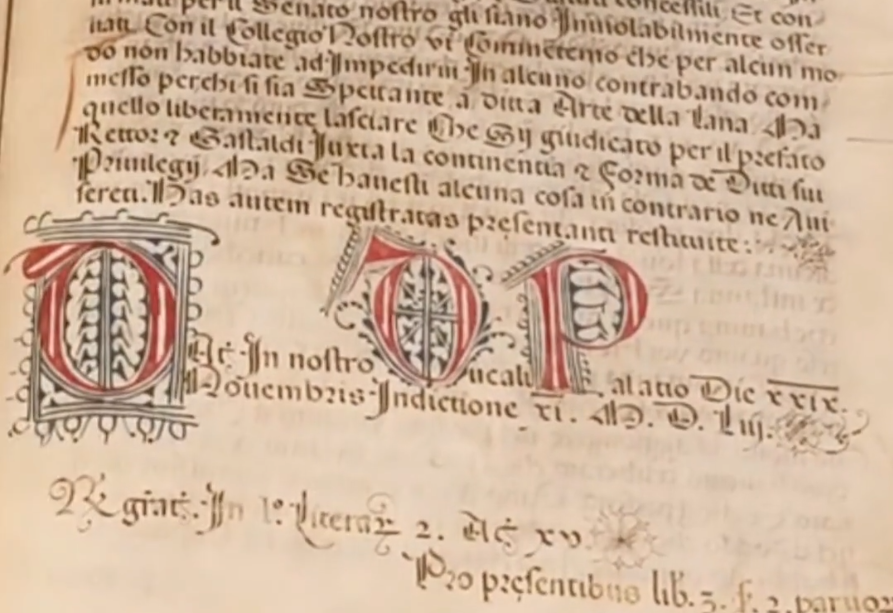 per il Senato nostro gli siano Inuiolabilmente osser
uati. Con il Collegio Nostro vi Commetemo che per alcun mo
do non habbiate ad Impedirui In alcuno contrabando com-
messo perchi si sia Spettante a ditta Arte della Lana. Ma
quello liberamente lasciare Che Sij giudicato per il prefato
Rettor & Gastaldi Iuxta la continentia & Forma de Ditti sui
Priuilegij. Ma Se hauesti alcuna cosa in contrario ne Aui-
sereti. Has autem registratas presentanti restituite:
Dat. In nostro Ducali Palatio Die xxix.
Nouembris Indictione xi. M. D. Liij.
Rᵗ grat. In l.º Litera℞ 2. Ac̃ xv.
Pro presentibus lib. 3. ſ. 2. paruor